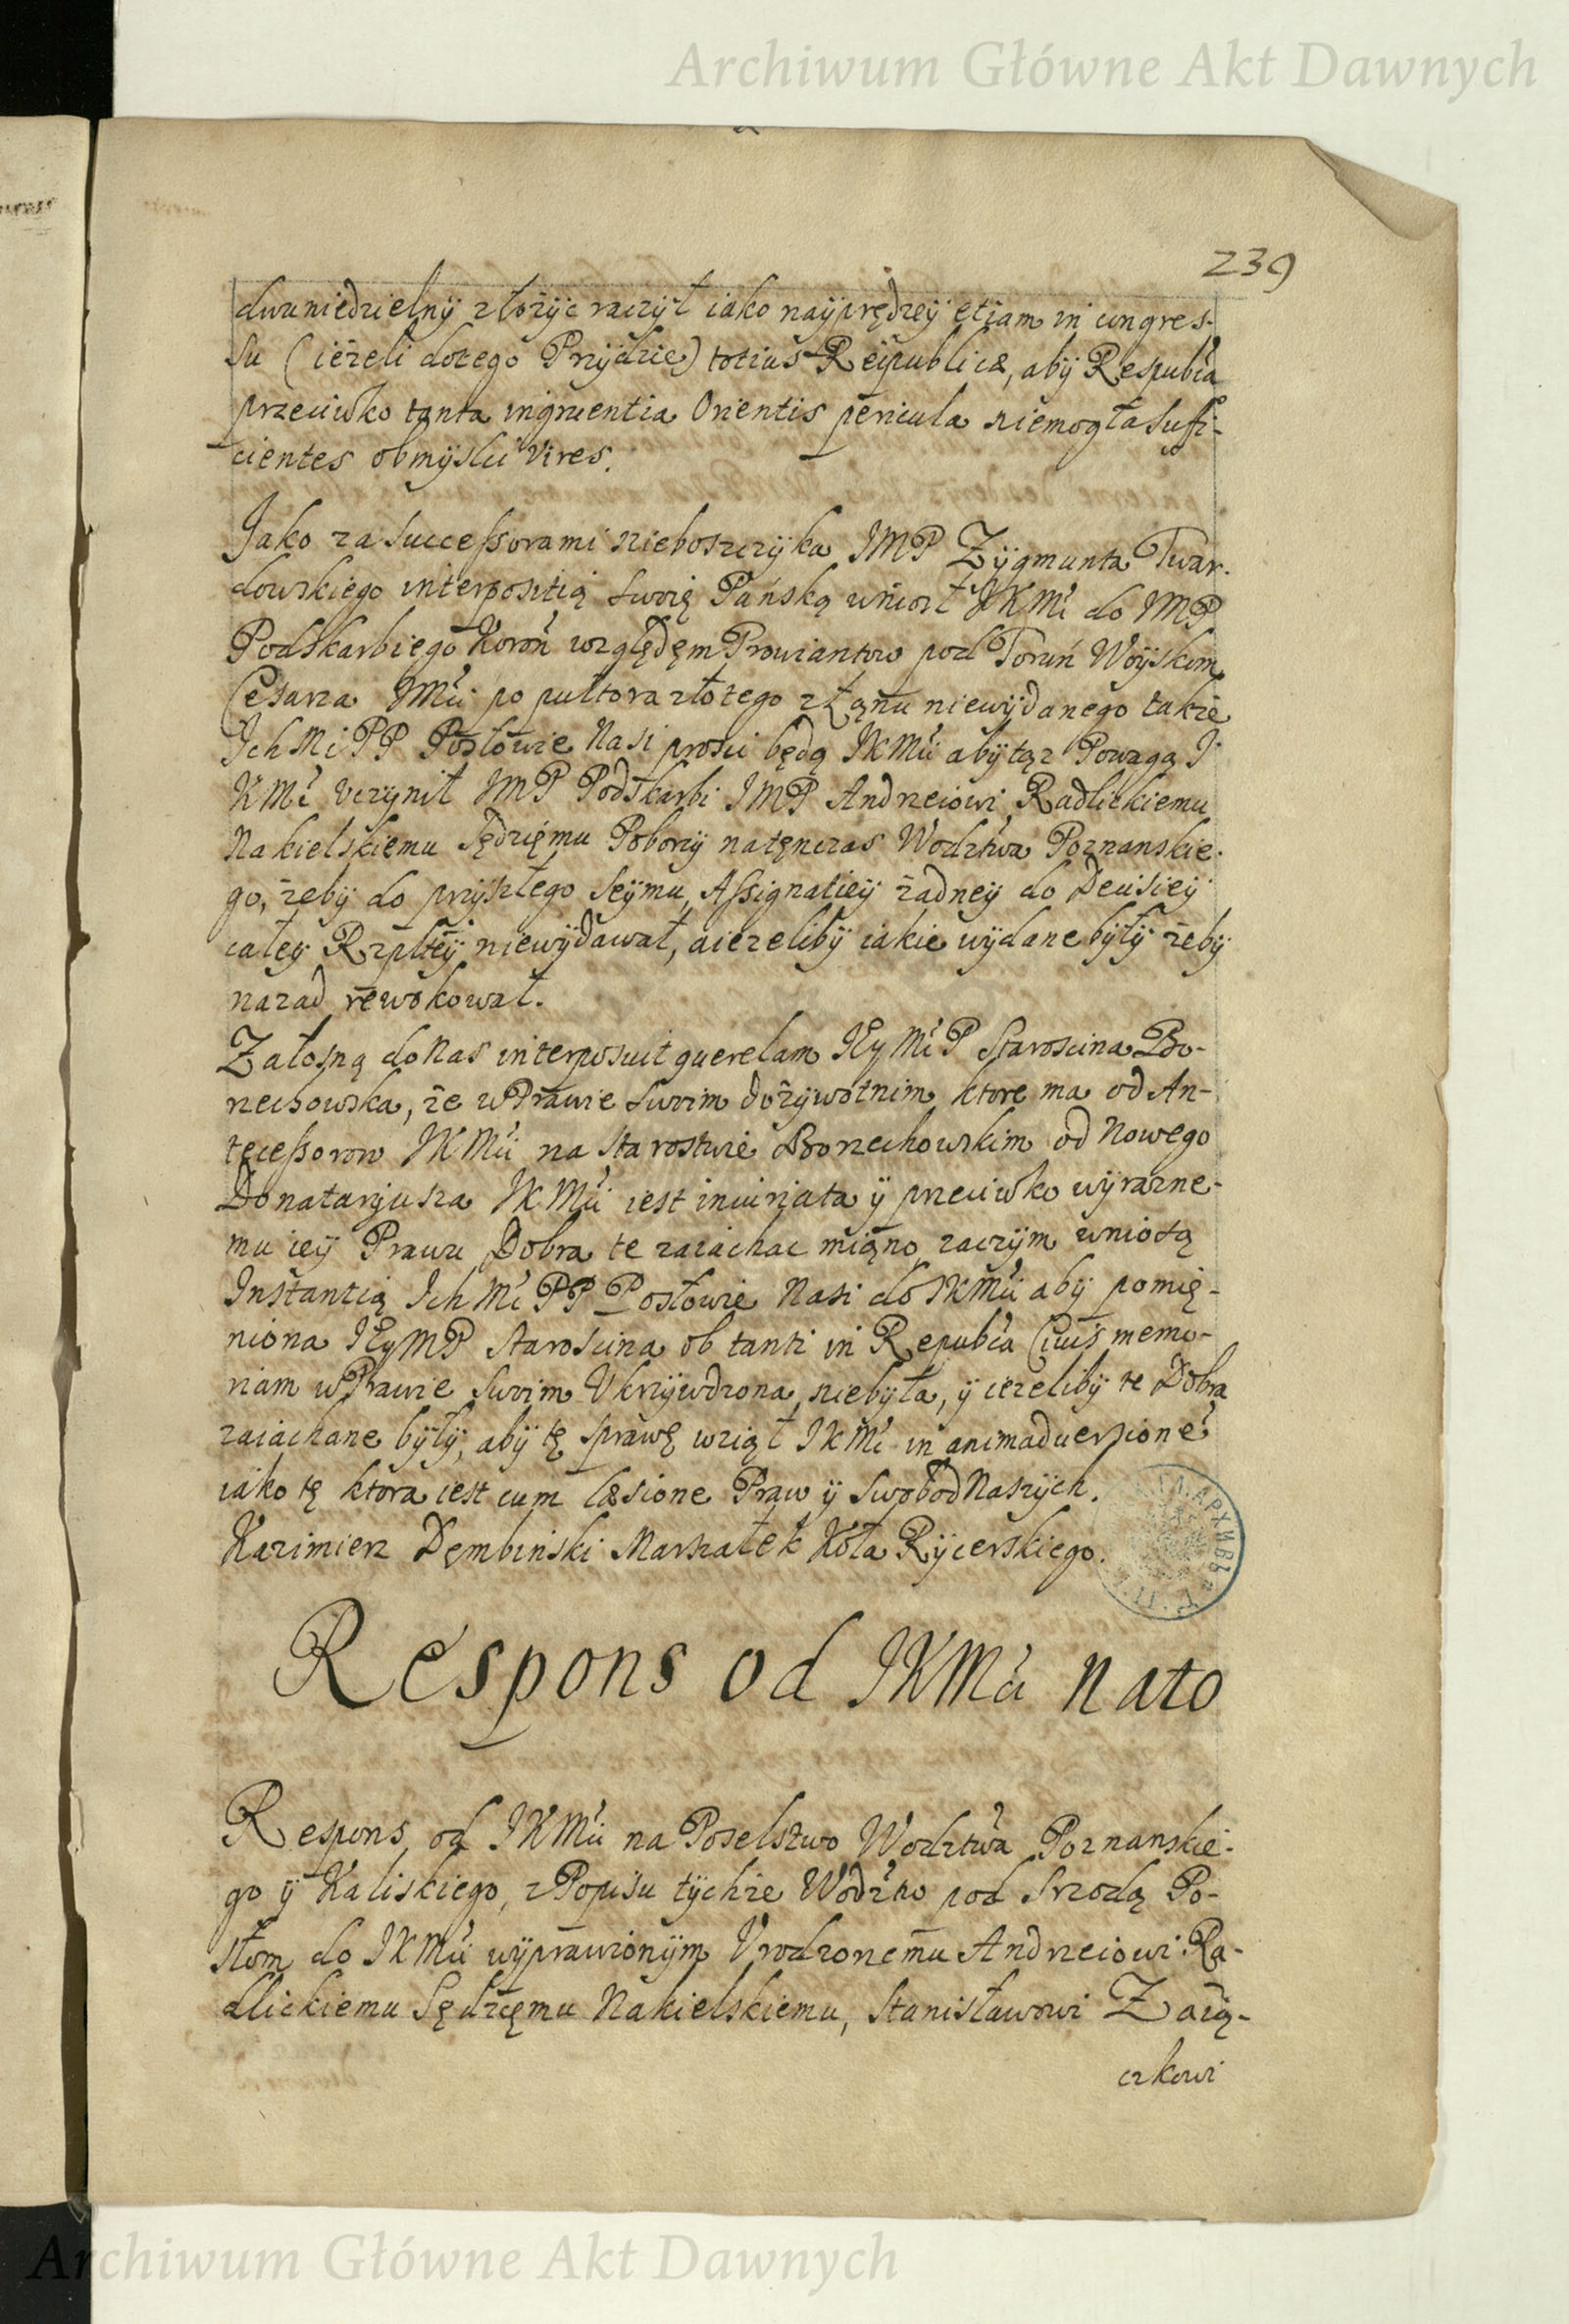 Archiwum Główne Akt Dawnych
239
dwuniedzielnÿ złożÿc raczÿł iako naÿprędzeÿ etiam in congres-
su (ieżeli dotego Przÿdzie) totius Reipublicæ, abÿ Respubca
przeciwko tanta ingruentia Orientis pericula niemogła suffi-
cientes obmÿslic vires.
Jako za Successorami nieboszczÿka JMP Zÿgmunta Twar-
dowskiego interpositią swoię Pańską wniosł JKMc do JMP
Podskarbiego Koron względęm Prowiantow pod Toruń Woÿskom
Cesarza JMci po pułtora złotego z Łanu niewÿdanego także
Jch Mc PP Posłowie Nasi prosic będą JKMci abÿ tąz Powagą J
KMc vczÿnił JMP Podskarbi JMP Andrzeiowi Radlickiemu
Nakielskiemu Sędzięmu Poborcÿ natęnczas Wodztwa Poznanskie-
go, żebÿ do przÿszłego Seÿmu, Assignatieÿ żadneÿ do Decisieÿ
całeÿ Rzpłteÿ niewÿdawał, aieżelibÿ iakie wÿdane bÿłÿ żebÿ
nazad rewokował.
Załosną do Nas interposuit querelam JEy Mc P Staroscina Bo-
rzechowska, że w Prawie swoim dożÿwotnim ktore ma od An-
tęcessorow JKMci na starostwie Borzechowskim od Nowego
Donatarjusza JKMci iest iniurjata ÿ przeciwko wÿrazne-
mu ieÿ Prawu Dobra te zaiachac miąno zaczÿm wniosą
Instantią Jch Mc PP Posłowie Nasi do JKMci abÿ pomię-
niona JEyMP Staroscina ob tanti in Repubca Civis memo-
riam w Prawie swoim Vkrzÿwdzona niebÿła, ÿ ieżelibÿ te Dobra
zaiachane bÿłÿ, abÿ tę sprawę wziął JKMc in animaduersione
iako tę ktora iest cum læsione Praw ÿ Swobod Naszÿch.
Kazimierz Dęmbiński Marszałek Koła Rÿcerskiego.
Respons od JKMci nato
Respons od JKMci na Poselstwo Wodztwa Poznanskie-
go ÿ Kaliskiego, z Popisu tÿchże Wodztw pod Srzodą Po-
słom do JKMci wÿprawionÿm Vrodzonemu Andrzeiowi Ra-
dlickiemu Sędzięmu Nakielskiemu, Stanisławowi Zaią-
czkowi
Archiwum Główne Akt Dawnych